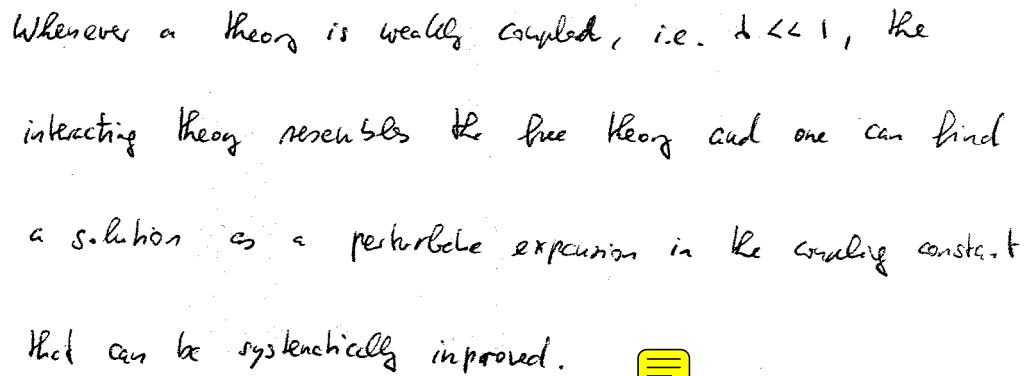 Whenever a theory is weakly coupled, i.e. λ << 1, the
interacting theory resembles the free theory and one can find
a solution as a perturbative expansion in the coupling constant
that can be systematically improved.